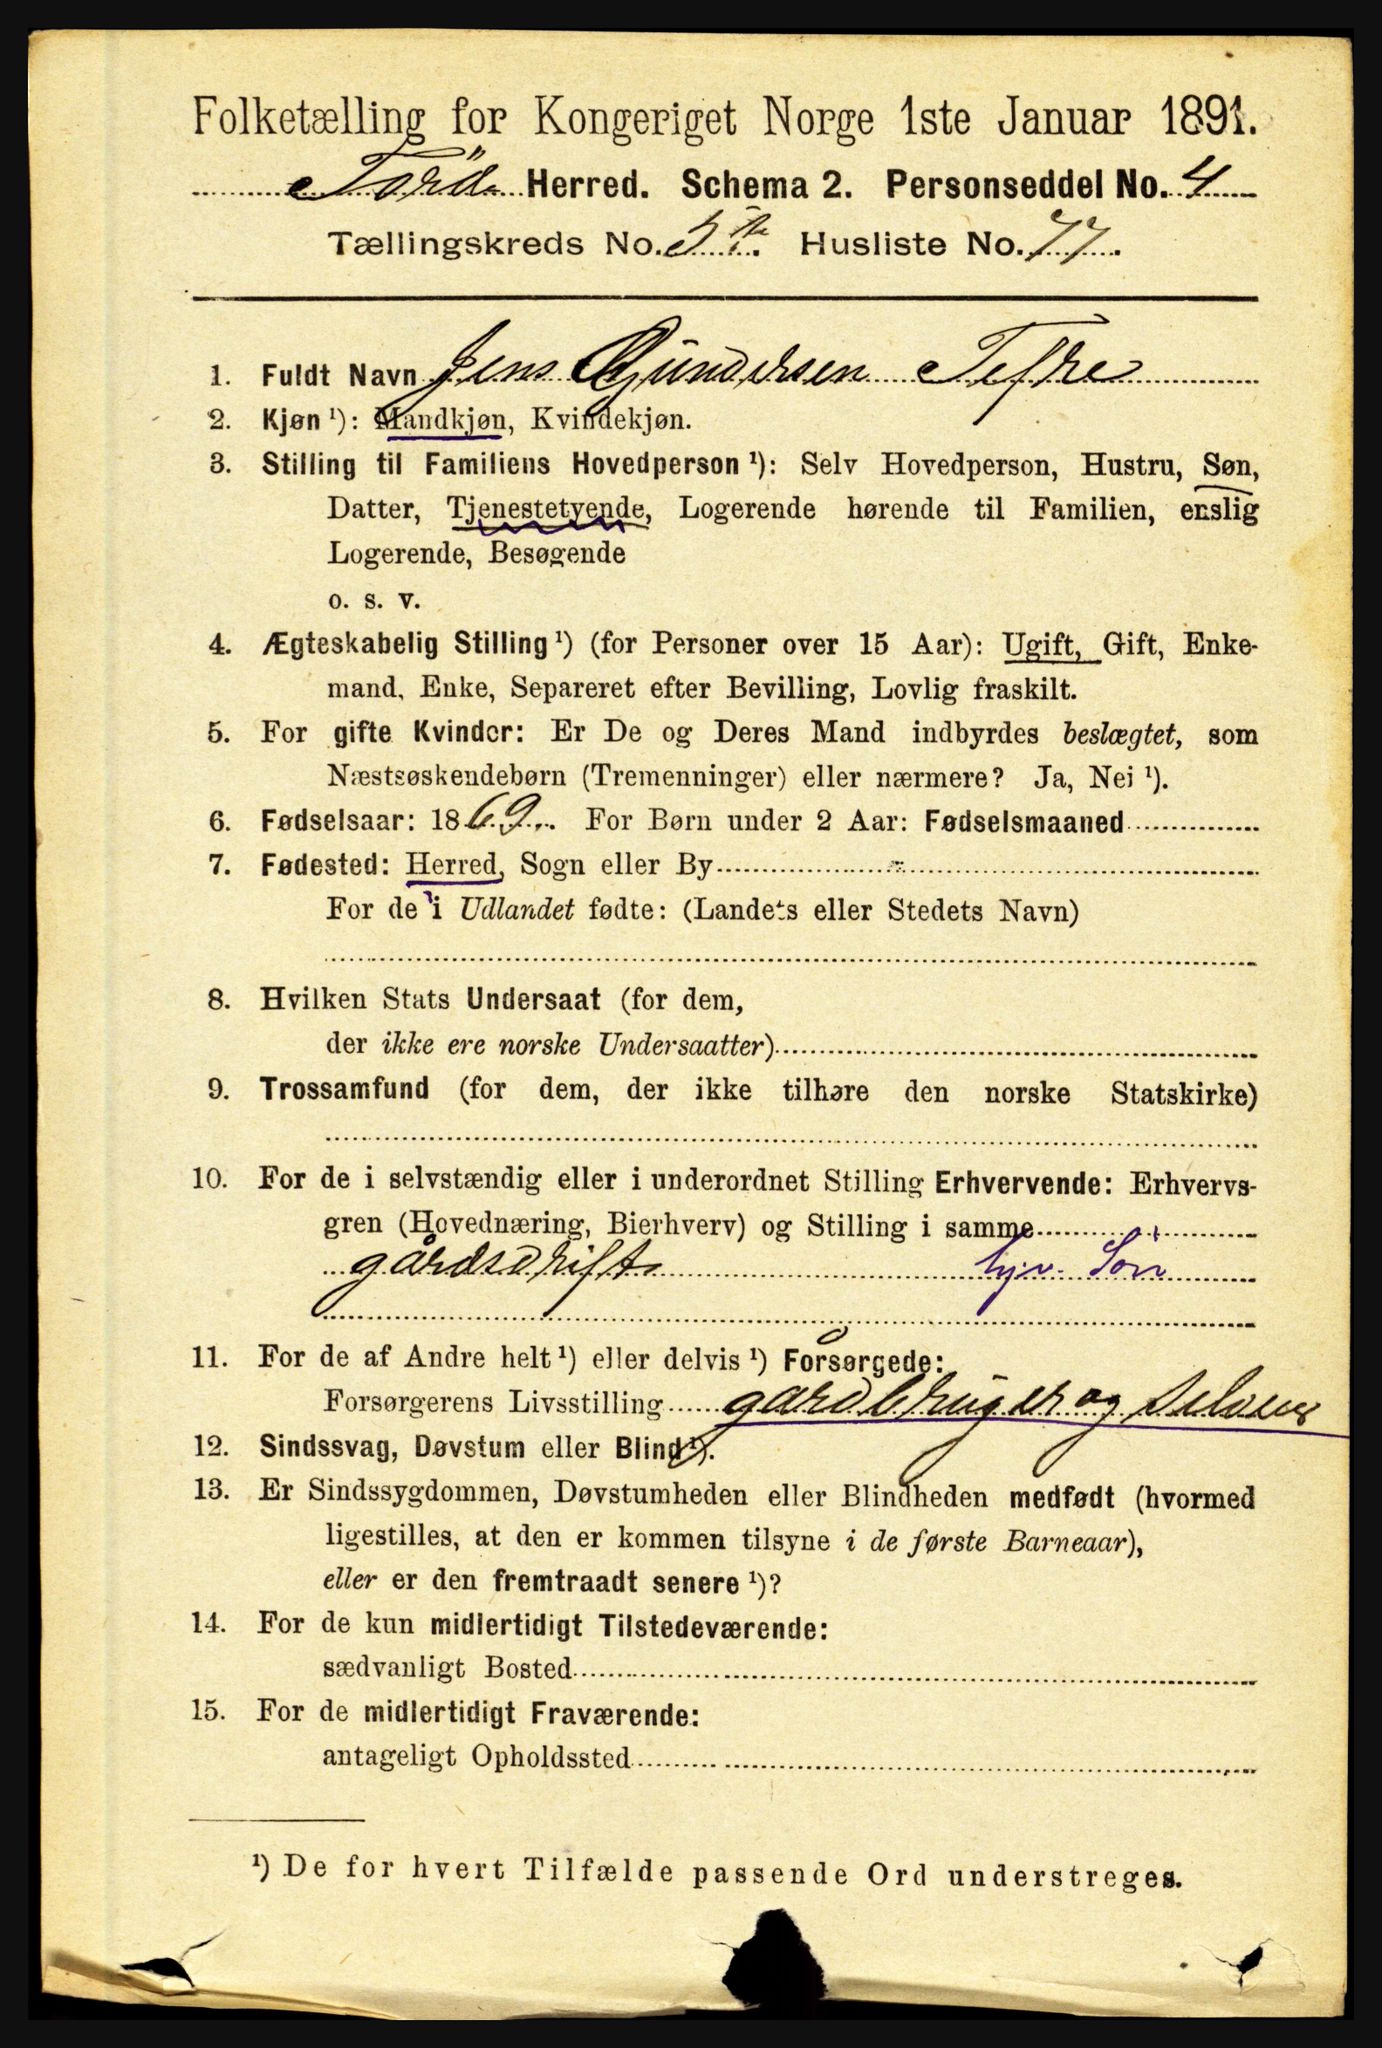 Folketælling for Kongeriget Norge 1ste Januar 1891.
Herred. Schema 2. Personseddel No. 4
Tællingskreds No. 5te. Husliste No. 77.
1. Fuldt Navn Jens Gundersen Tefre
2. Kjøn ¹): Mandkjøn, Kvindekjøn.
3. Stilling til Familiens Hovedperson ¹): Selv Hovedperson, Hustru, Søn,
Datter, Tjenestetyende, Logerende hørende til Familien, enslig
Logerende, Besøgende
o. s. v.
4. Ægteskabelig Stilling ¹) (for Personer over 15 Aar): Ugift, Gift, Enke-
mand, Enke, Separeret efter Bevilling, Lovlig fraskilt.
5. For gifte Kvinder: Er De og Deres Mand indbyrdes beslægtet, som
Næstsøskendebørn (Tremenninger) eller nærmere? Ja, Nei ¹).
6. Fødselsaar: 1869. For Børn under 2 Aar: Fødselsmaaned
7. Fødested: Herred, Sogn eller By
For de i Udlandet fødte: (Landets eller Stedets Navn)
8. Hvilken Stats Undersaat (for dem,
der ikke ere norske Undersaatter)
9. Trossamfund (for dem, der ikke tilhøre den norske Statskirke)
10. For de i selvstændig eller i underordnet Stilling Erhvervende: Erhvervs-
gren (Hovednæring, Bierhverv) og Stilling i samme
gårdsdrift hjv. Søn
11. For de af Andre helt ¹) eller delvis ¹) Forsørgede:
Forsørgerens Livsstilling gårdbruger og
12. Sindssvag, Døvstum eller Blind ¹).
13. Er Sindssygdommen, Døvstumheden eller Blindheden medfødt (hvormed
ligestilles, at den er kommen tilsyne i de første Barneaar),
eller er den fremtraadt senere ¹)?
14. For de kun midlertidigt Tilstedeværende:
sædvanligt Bosted
15. For de midlertidigt Fraværende:
antageligt Opholdssted
¹) De for hvert Tilfælde passende Ord understreges.